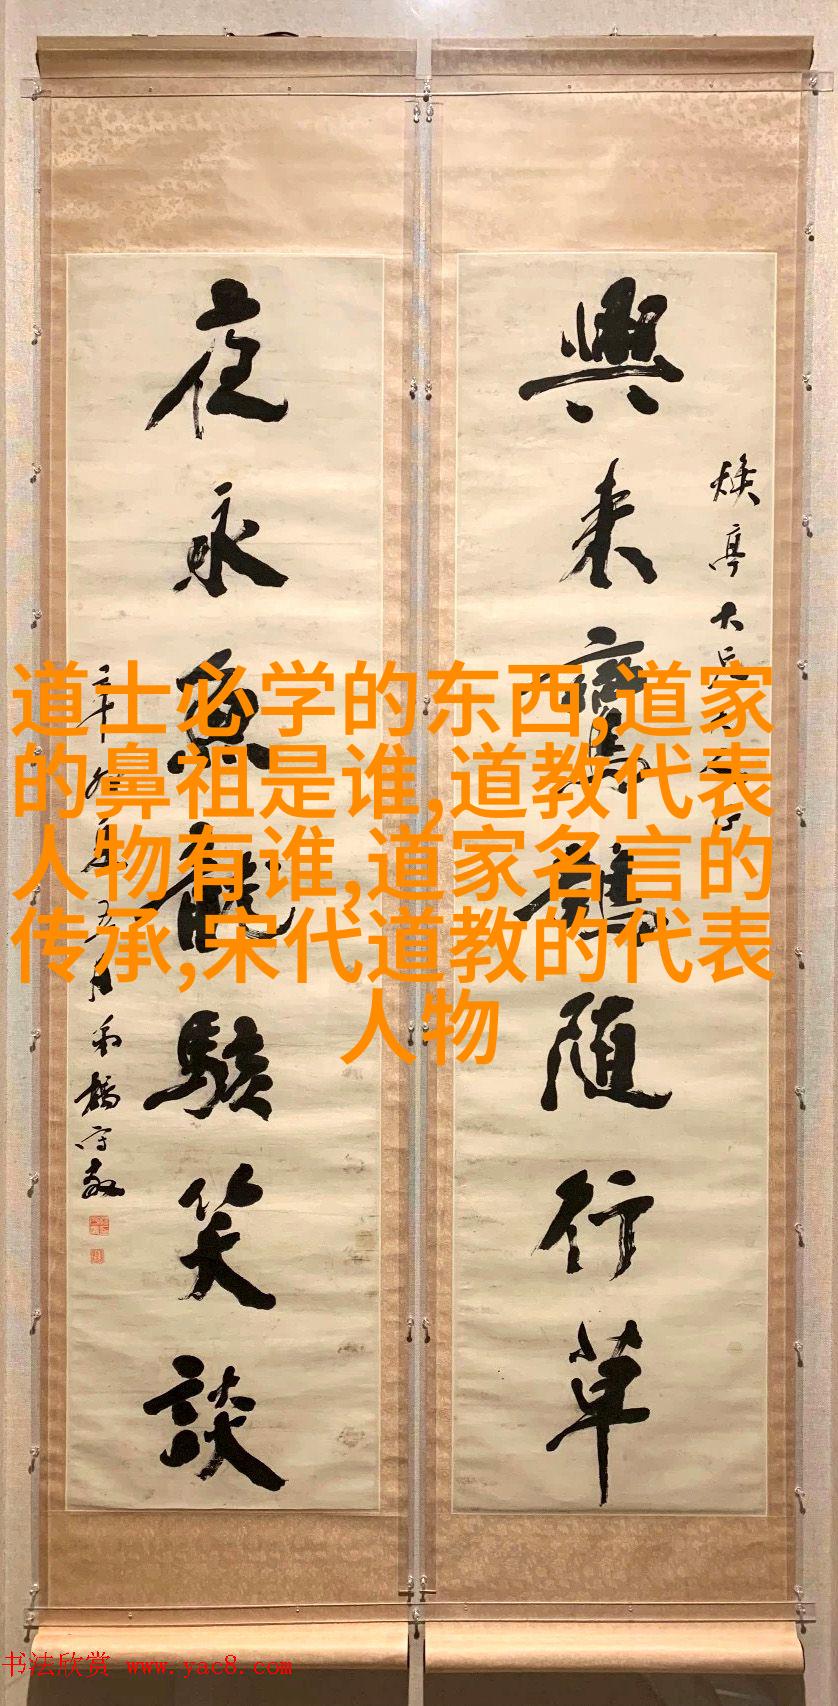 道士必学的东西,道家
的鼻祖是谁,道教代表
人物有谁,道家名言的
传承,宋代道教的代表
人物
煥亭大兄
興来鶴随行草
夜永魚龍駭笑談
五月楊守敬
书法欣赏 www.yac8.com